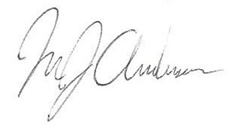 MJ Anderson